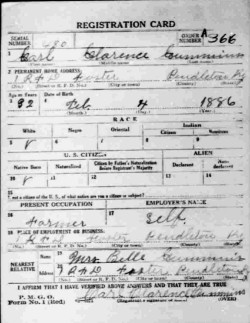 REGISTRATION CARD
SERIAL NUMBER 680 ORDER NUMBER A366
1 Earl Clarence Cummins
2 PERMANENT HOME ADDRESS:
R F D Foster Pendleton Ky
(No.) (Street or R. F. D. No.) (City or town) (County) (State)
Age in Years Date of Birth
32 Feb. 4 1886
(Month.) (Day.) (Year.)
RACE
White Negro Oriental Indian
Citizen Noncitizen
U. S. CITIZEN ALIEN
Native Born Naturalized Citizen by Father's Naturalization Before Registrant's Majority Declarant Non-declarant
15 If not a citizen of the U. S., of what nation are you a citizen or subject?
PRESENT OCCUPATION EMPLOYER'S NAME
Farmer Self
PLACE OF EMPLOYMENT OR BUSINESS:
R F D Foster Pendleton Ky
(No.) (Street or R. F. D. No.) (City or town) (County) (State)
NEAREST RELATIVE
Name Mrs Belle Cummins
Address R F D Foster Pendleton Ky
(No.) (Street or R. F. D. No.) (City or town) (County) (State)
I AFFIRM THAT I HAVE VERIFIED ABOVE ANSWERS AND THAT THEY ARE TRUE
P. M. G. O.
Form No. 1 (Red) Earl Clarence Cummins
(OVER)